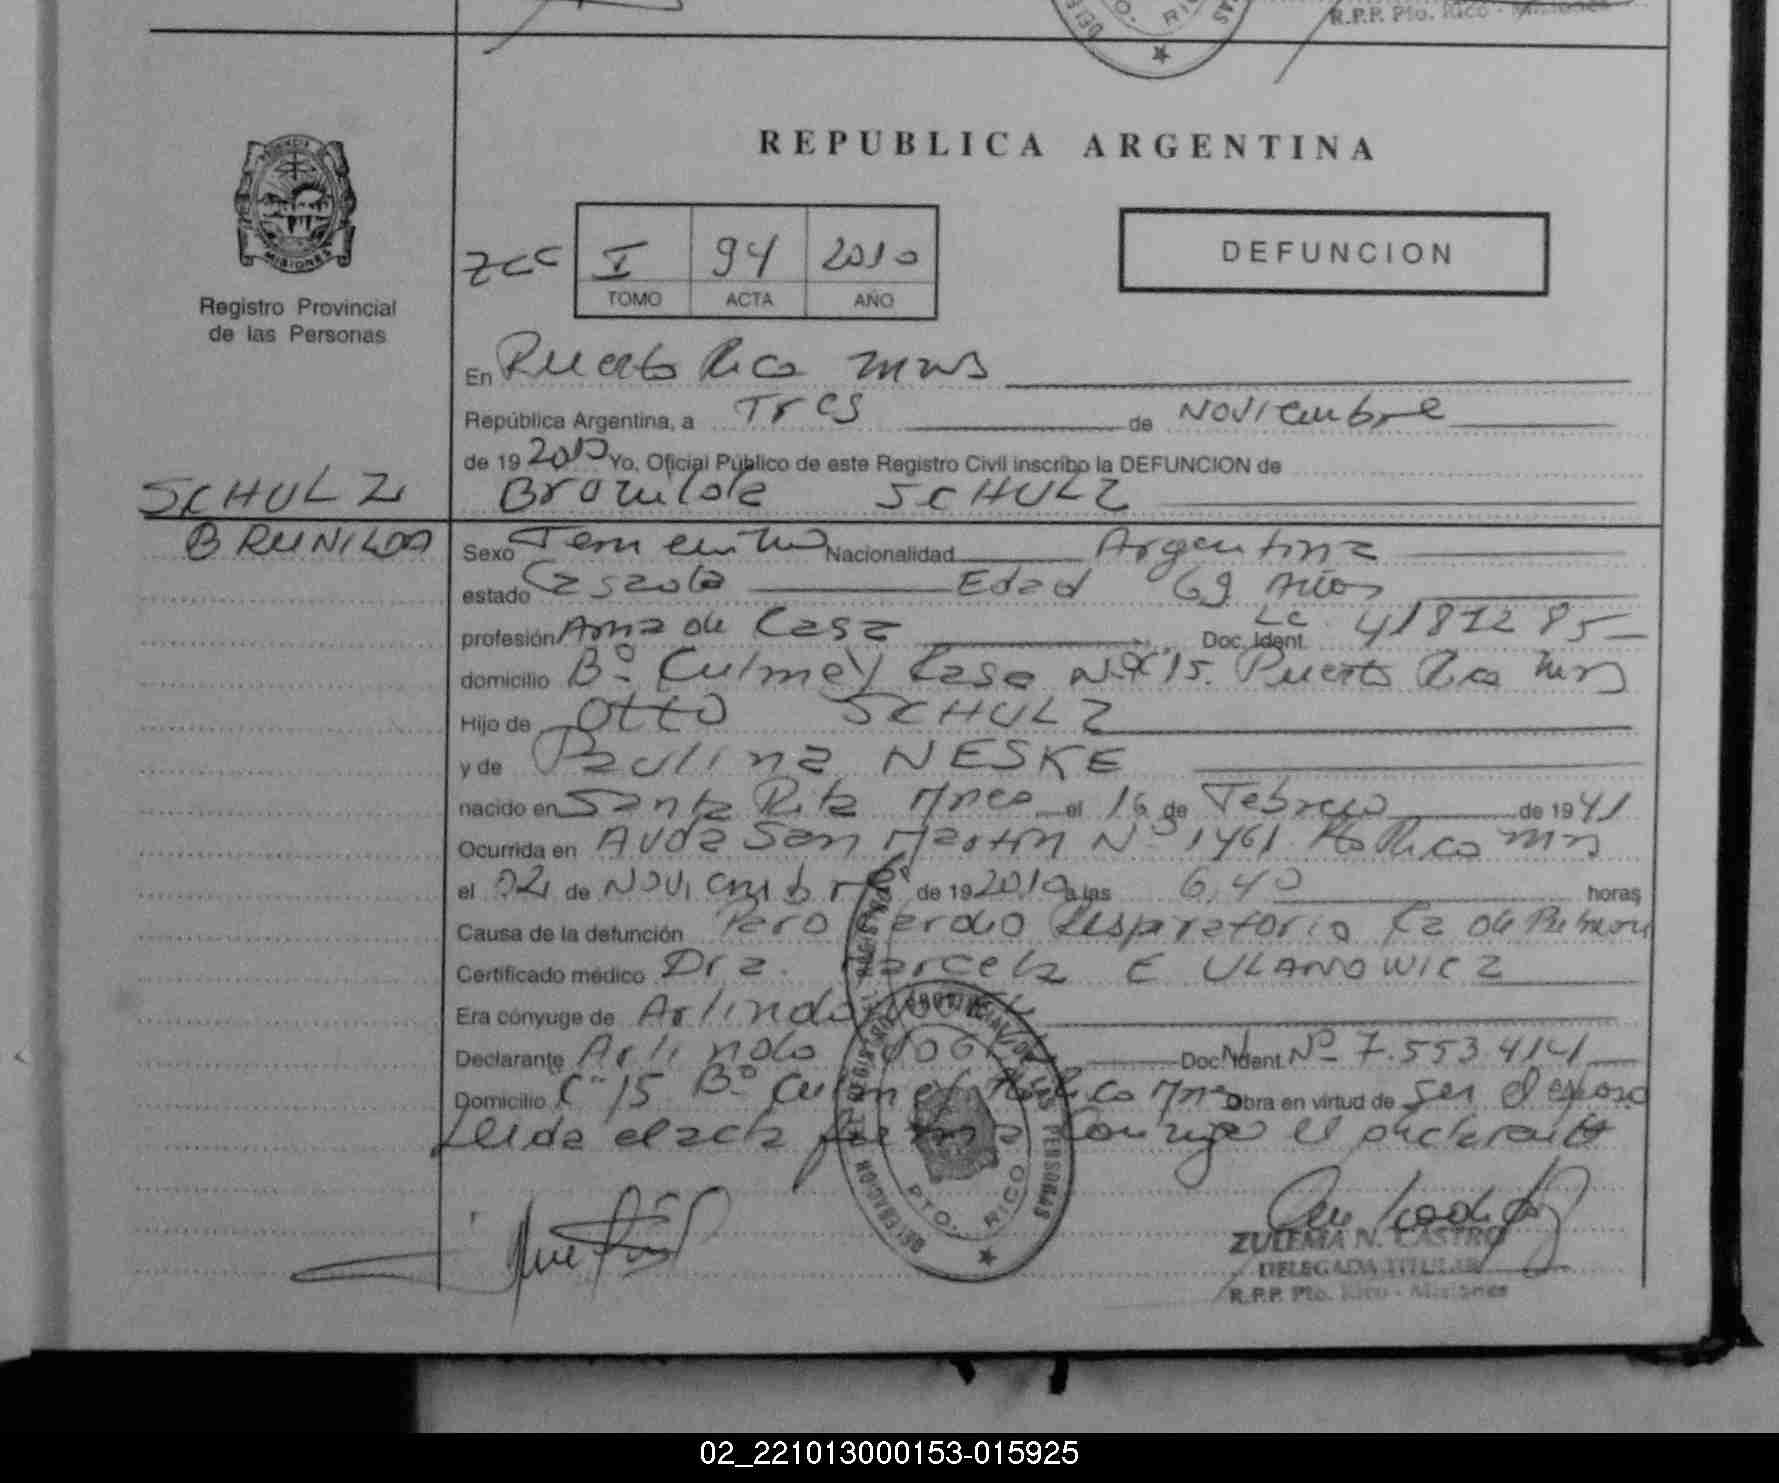 R.P.P. Pto. Rico - Misiones
REPUBLICA ARGENTINA
I 94 2010
TOMO ACTA AÑO
DEFUNCION
PROVINCIA DE
MISIONES
Registro Provincial
de las Personas
En Puerto Rico Mns
República Argentina, a Tres de Noviembre
de 19 2010 Yo, Oficial Público de este Registro Civil inscribo la DEFUNCION de
SCHULZ
BRUNILDA
Brunilda SCHULZ
Sexo Femenino Nacionalidad Argentina
estado Casada Edad 69 Años
profesión Ama de Casa Doc. Ident. LC 4187285
domicilio Bº Culmey Casa Nº 15. Puerto Rico Mns
Hijo de Otto SCHULZ
y de Paulina NESKE
nacido en Santa Rita Mnes el 16 de Febrero de 1941
Ocurrida en Avda San Martin Nº 1461 Pto Rico Mns
el 02 de Noviembre de 19 2010 a las 6,40 horas
Causa de la defunción Paro Cardio Respiratorio Ca de Pulmon
Certificado médico Dra. Marcela E ULANOWICZ
Era cónyuge de Arlindo
Declarante Arlindo Doc. Ident. Nº 7.553.414
Domicilio Cº 15 Bº Culmey Pto Rico Mns Obra en virtud de ser el esposo
Leida el acta firma Conmigo el declarante
DELEGACION DEL REGISTRO PROVINCIAL DE LAS PERSONAS
PTO. RICO
ZULEMA N. CASTRO
DELEGADA TITULAR
R.P.P. Pto. Rico - Misiones
02_221013000153-015925